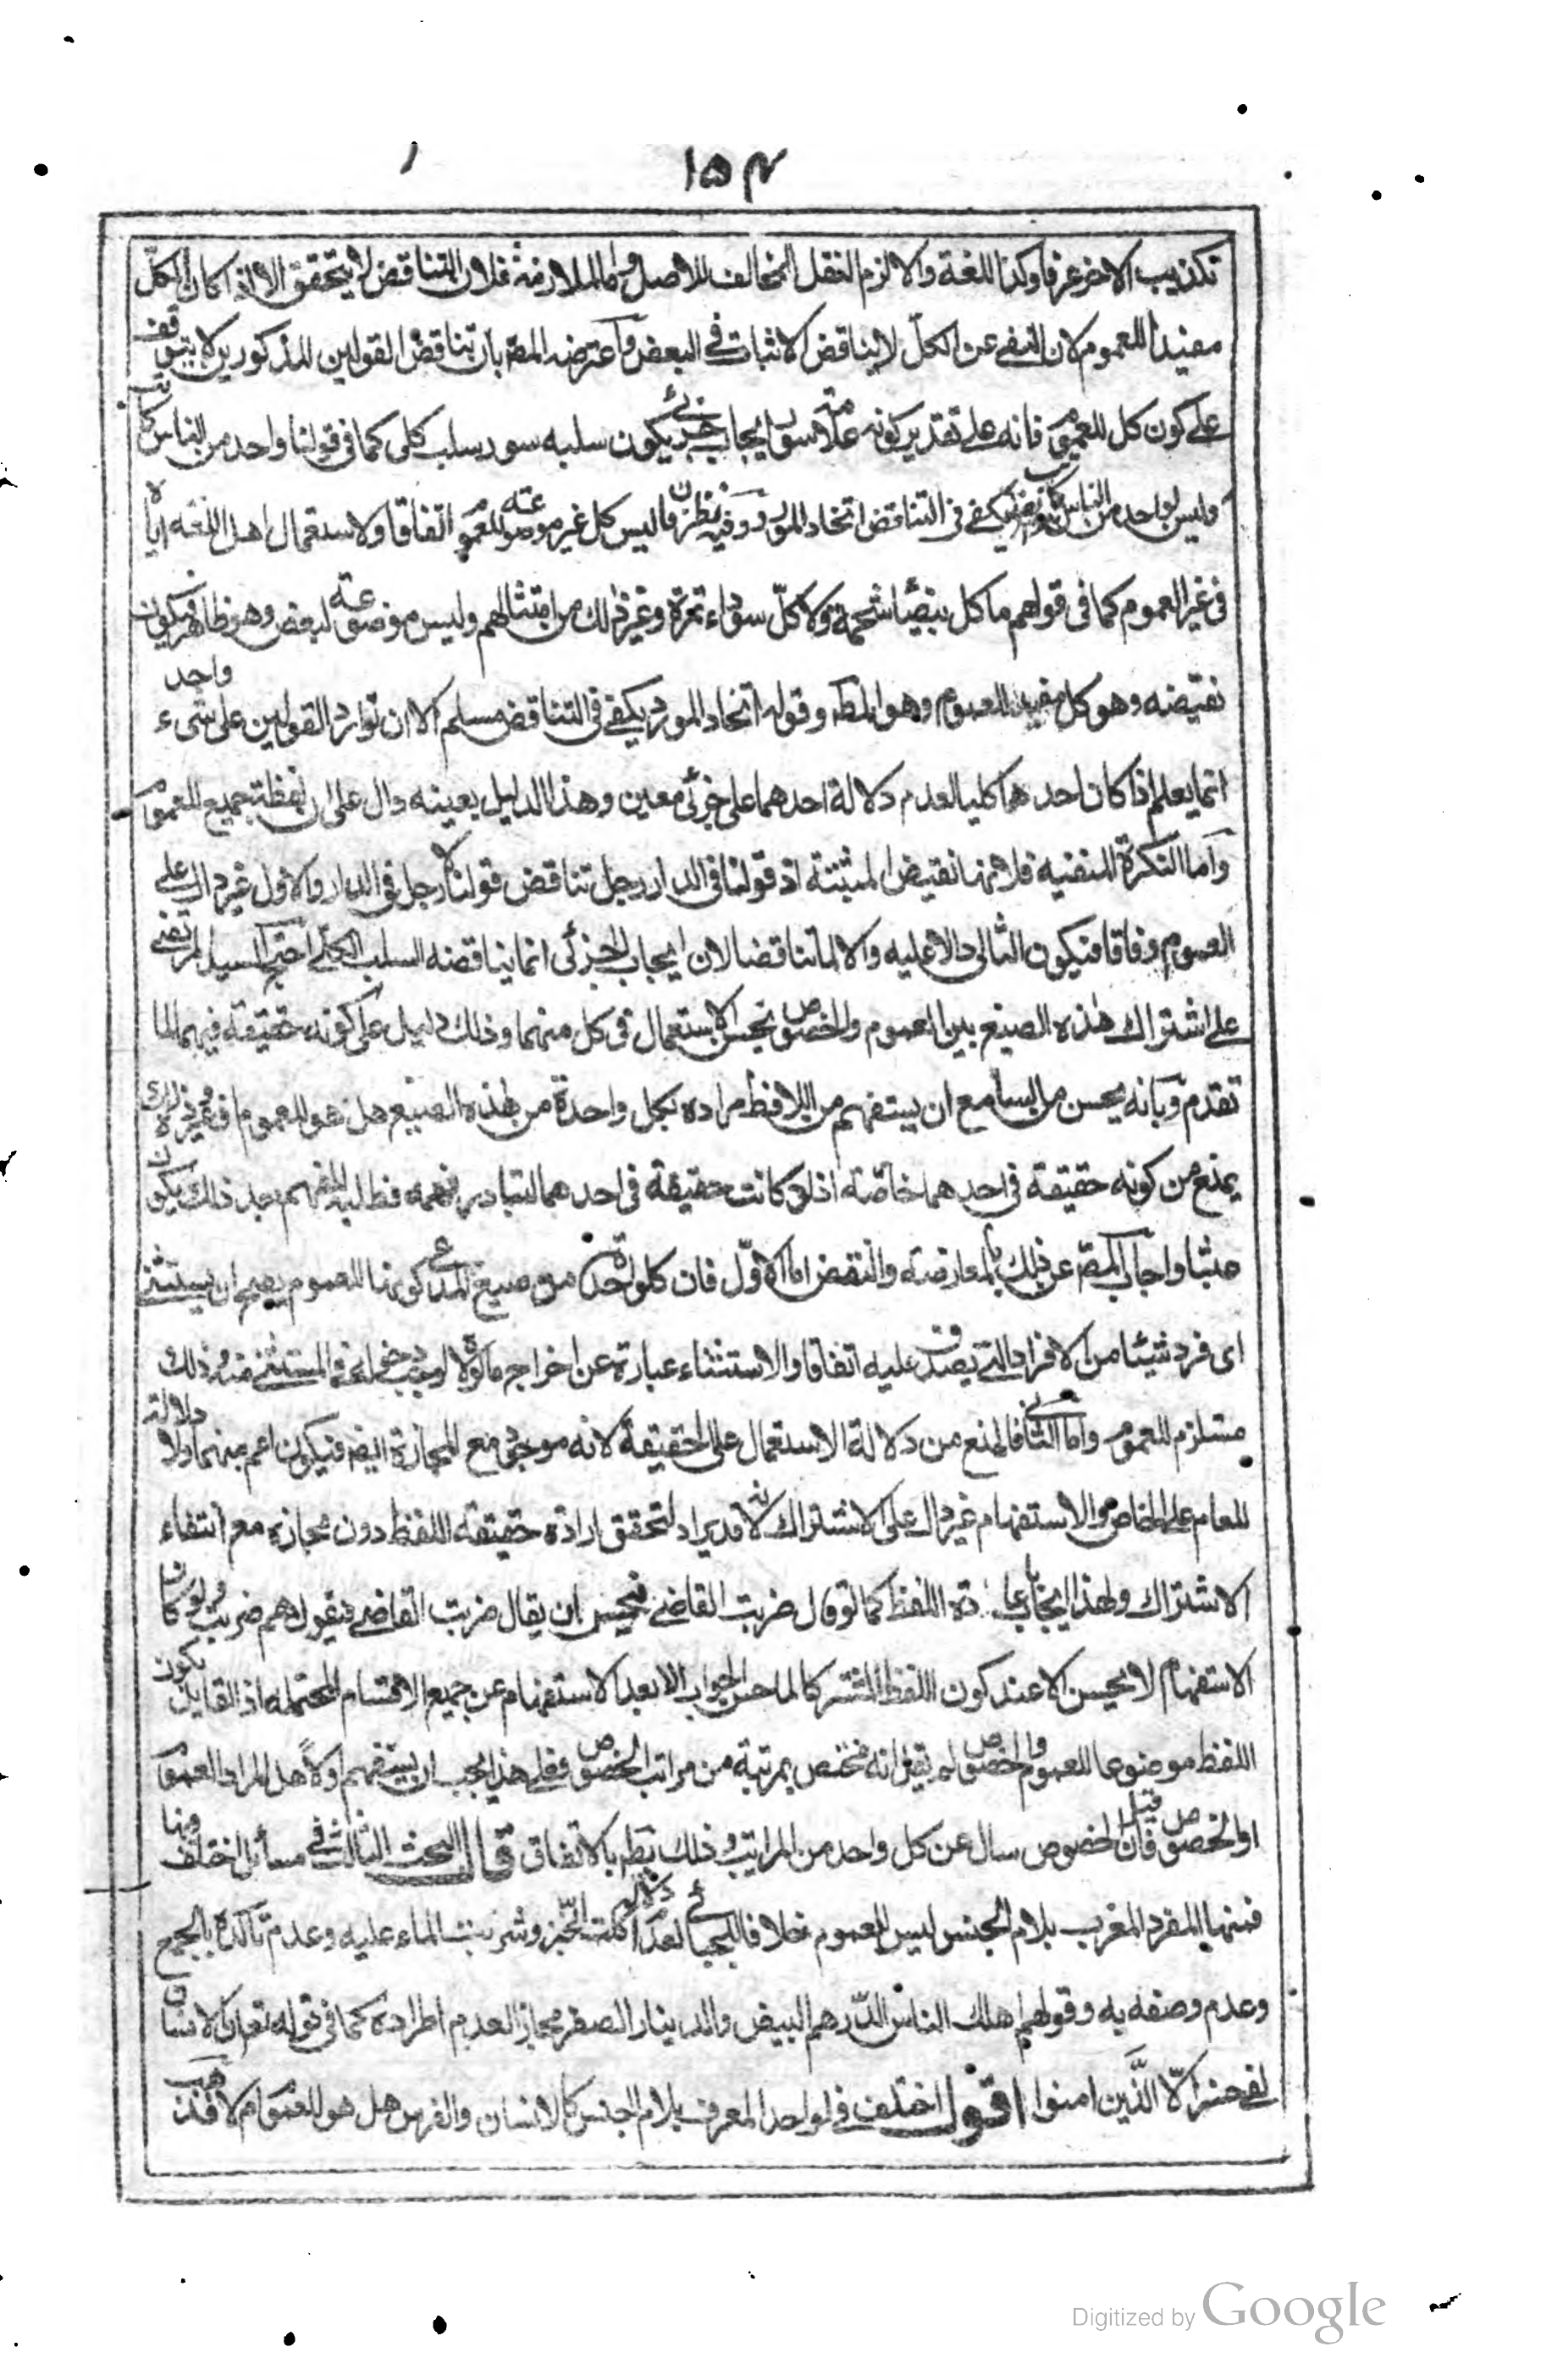 ١٥٣
تكذيب الاخر عرفا وكذا اللغة والا لزم النقل المخالف للاصل واما الملازمة فلان التناقض لا يتحقق الا اذا كان الكل
مفيدا للعموم لان النفى عن الكل لا يناقض الاثبات في البعض وآعترضه المص بان تناقض القولين المذكورين لا يتوقف
على كون كل للعموم فانه على تقدير كونه علامة سور ايجاب جزئى يكون سلبه سور سلب كلى كما فى قولنا واحد من الناس كاتب
وليس لواحد من الناس كاتب يكفى فى التناقض اتحاد المورد وفيه نظر فان ليس كل غير موضوعة للعموم اتفاقا ولاستعمال اهل اللغة اياه
فى غير العموم كما فى قولهم ما كل بيضاء شحمة ولا كل سوداء تمرة وغير ذلك من امثالهم وليس موضوعة لبعض وهو ظاهر فيكون
نقيضه وهو كل مفيد للعموم وهو المط وقوله اتحاد المورد يكفى فى التناقض مسلم الا ان توارد القولين على شىء واحد
انما يعلم اذا كان احدهما كليا لعدم دلالة احدهما على جزئى معين وهذا الدليل بعينه دال على ان لفظة جميع للعموم
وآما النكرة المنفيه فلانها نقيض المثبتة اذ قولنا فى الدار رجل تناقض قولنا لا رجل فى الدار والاول غير دال على
العموم وفاقا فيكون الثانى دالا عليه والا لما تناقضا لان ايجاب الجزئى انما يناقضه السلب الكلى احتج السيد المرتضى
على اشتراك هذه الصيغ بين العموم والخصوص بحسن الاستعمال فى كل منهما وذلك دليل على كونه حقيقة فيهما لما
تقدم وبانه يحسن من السامع ان يستفهم من اللافظ مراده بكل واحدة من هذه الصيغ هل هو للعموم او غيره وذلك
يمنع من كونه حقيقة فى احدهما خاصة اذ لو كانت حقيقة فى احدهما لتبادر فهمه فطلب الفهم بعد ذلك يكون
عبثا واجاب المص عن ذلك بالمعارضة والنقض اما الاول فان كل واحدة من صيغ المدعى كونها للعموم يصح ان يستثنى
اى فرد شيئا من الافراد التى يصدق عليه اتفاقا والاستثناء عبارة عن اخراج ما لولاه لوجب دخوله فى المستثنى منه وذلك
مستلزم للعموم واما الثانى فالمنع من دلالة الاستعمال على الحقيقة لانه موجود مع المجاز ايضا فيكون اعم منهما ولا دلالة
للعام على الخاص والاستفهام غير دال على الاشتراك لانه قد يراد لتحقق ارادة حقيقة اللفظ دون مجازه مع انتفاء
الاشتراك ولهذا يجاب باعادة اللفظ كما لو قال ضربت القاضى فيحسن ان يقال ضربت القاضى فيقول نعم ضربت ولو كان
الاستفهام لا يحسن الا عند كون اللفظ المشتركا لما حسن الجواب الا بعد الاستفهام عن جميع الاقسام المحتمله اذ القايل بكون
اللفظ موضوعا للعموم والخصوص لم يقل انه مختص بمرتبة من مراتب الخصوص فعلى هذا يجب ان يستفهم اولاً هل المراد العموم
او الخصوص فان قيل الخصوص سال عن كل واحد من المراتب وذلك بط بالاتفاق قال البحث الثالث فى مسائل اختلف فيها
فمنها المفرد المعرب بلام الجنس ليس للعموم خلافا للجبائى لعدم دلالة اكلت الخبز وشربت الماء عليه وعدم تاكده بالجمع
وعدم وصفه به وقولهم اهلك الناس الدرهم البيض والدينار الصفر مجاز لعدم اطراده كما فى قوله تعالى ان الانسان
لفى خسر الا الذين امنوا اقول اختلف فى الواحد المعرف بلام الجنس كالانسان والفرس هل هو للعموم ام لا فذهب
Digitized by Google